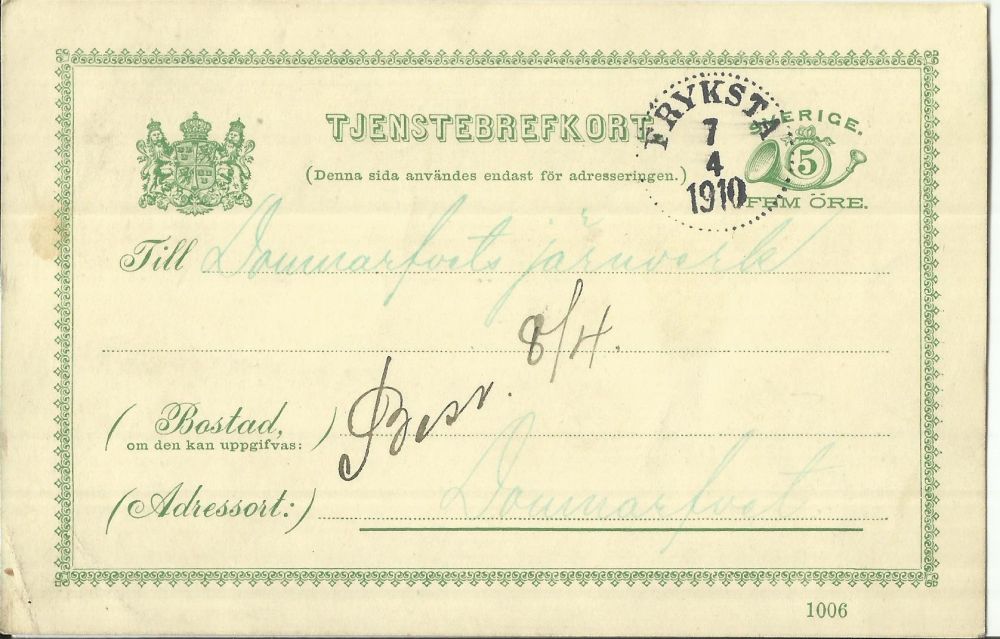 TJENSTEBREFKORT
(Denna sida användes endast för adresseringen.)
FRYKSTA
7
4
1910
SVERIGE.
5
FEM ÖRE.
Till Domnarfvets järnverk
8/4.
Besv.
(Bostad,
om den kan uppgifvas: )
(Adressort:) Domnarfvet
1006